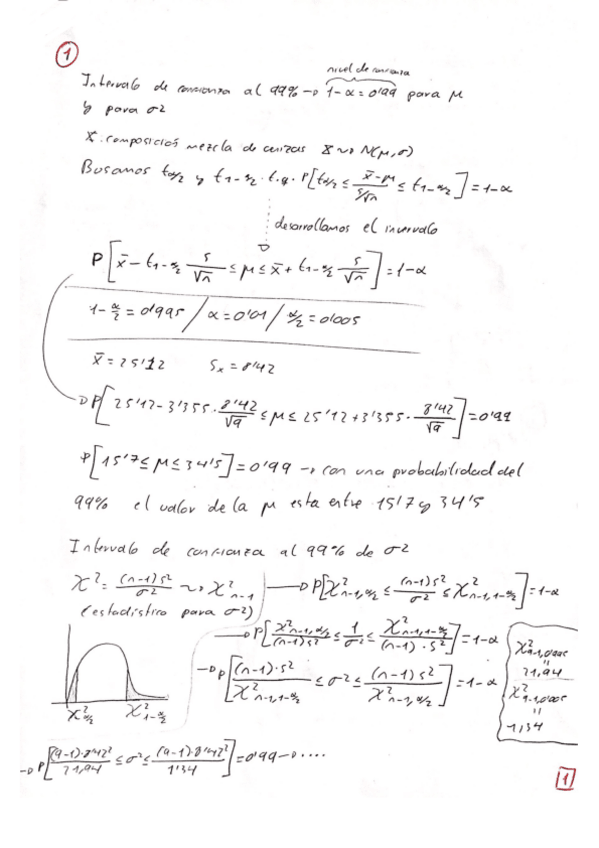 1
nivel de confianza
Intervalo de confianza al 99% → 1-α=0'99 para μ
y para σ2
X: composición mezcla de cenizas X ~> N(μ,σ)
Buscamos tα/2 y t1-α/2 t.q. P[tα/2 ≤ (x̄-μ)/(s/√n) ≤ t1-α/2]=1-α
desarrollamos el intervalo
P[x̄ - t1-α/2 s/√n ≤ μ ≤ x̄ + t1-α/2 s/√n]=1-α
1-α/2=0'995 / α=0'01 / α/2=0'005
x̄=25'12 Sx=8'42
→ P[25'12-3'355·8'42/√9 ≤ μ ≤ 25'12+3'355·8'42/√9]=0'99
P[15'7 ≤ μ ≤ 34'5]=0'99 → con una probabilidad del
99% el valor de la μ esta entre 15'7 y 34'5
Intervalo de confianza al 99% de σ2
χ²=(n-1)s²/σ² ~> χ²n-1 → P[χ²n-1,α/2 ≤ (n-1)s²/σ² ≤ χ²n-1,1-α/2]=1-α
(estadístico para σ2)
→ P[χ²n-1,α/2/(n-1)s² ≤ 1/σ² ≤ χ²n-1,1-α/2/(n-1)·s²]=1-α
→ P[(n-1)·s²/χ²n-1,1-α/2 ≤ σ² ≤ (n-1)s²/χ²n-1,α/2]=1-α
=
21,94
=
1,34
χ²α/2 χ²1-α/2
→ P[(9-1)·8'42²/21,94 ≤ σ² ≤ (9-1)·8'42²/1'34]=0'99 → ....
1